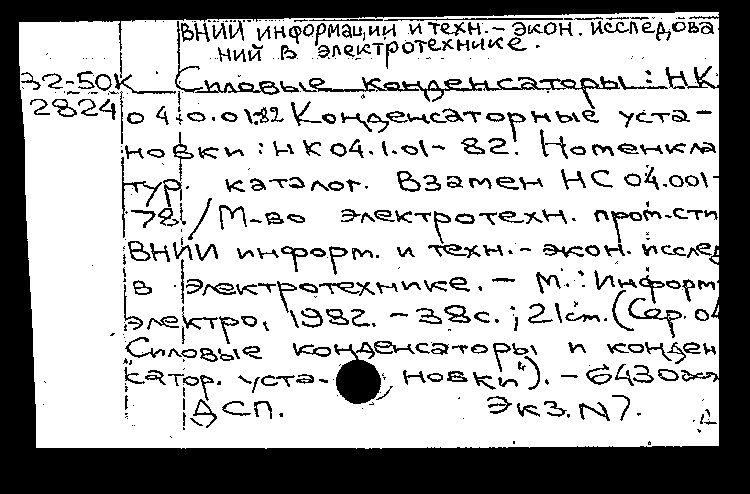 ВНИИ информации и техн.- экон. исследова
ний в электротехнике.
32-50К Силовые конденсаторы : НК
2824 04.0.01.82 Конденсаторные уста-
новки : НК 04.1.01- 82. Номенкла
тур. каталог. Взамен НС 04.001-
78. / М-во электротехн. пром-сти
ВНИИ информ. и техн.- экон. исслед
в электротехнике. - М. : Информ
электро, 1982. - 38с. ; 21см. (Сер. 04
"Силовые конденсаторы и конден
сатор. уста- новки"). - 6430
ДСП. Экз. N7.